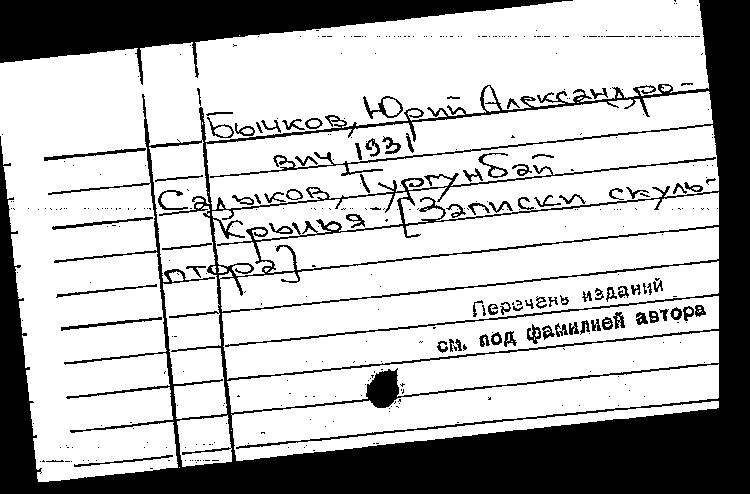 Бычков, Юрий Александро-
вич, 1931
Садыков, Тургунбай.
Крылья. [Записки скуль-
птора].
Перечень изданий
см. под фамилией автора